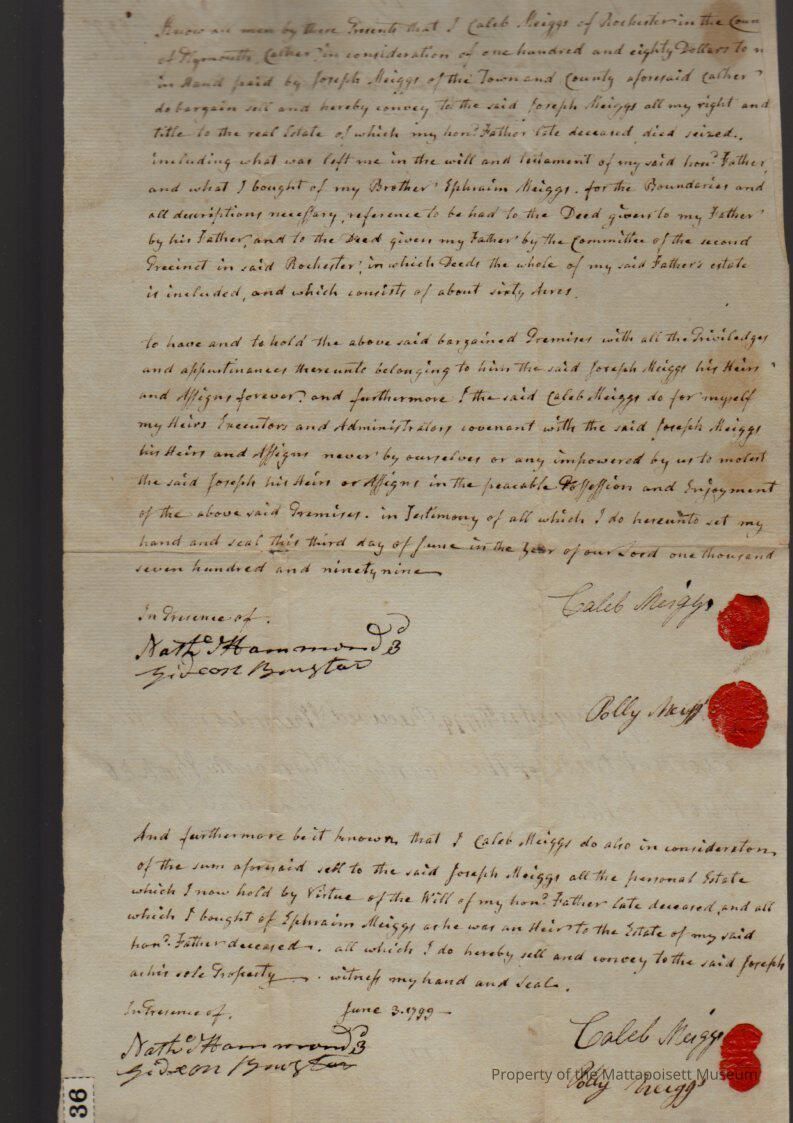 Know all men by these Presents that I Caleb Meiggs of Rochester in the Coun
of Plymouth, in consideration of one hundred and eighty Dollars to
in Hand paid by Joseph Meiggs of the Town and County aforesaid
do bargain sell and hereby convey to the said Joseph Meiggs all my right and
title to the real Estate of which my hond Father late deceased, died seized.
including what was left me in the will and testament of my said hond Father,
and what I bought of my Brother Ephraim Meiggs. for the Boundaries and
all descriptions necessary, reference to be had to the Deed given to my Father
by his Father, and to the Deed given my Father by the Committee of the second
Precinct in said Rochester, in which Deeds the whole of my said Father's estate
is included, and which consists of about sixty Acres.
to have and to hold the above said bargained Premises with all the Priviledges
and appurtinances thereunto belonging to him the said Joseph Meiggs his Heirs
and Assigns forever. and furthermore I the said Caleb Meiggs do for myself
my Heirs Executors and Administrators covenant with the said Joseph Meiggs
his Heirs and Assigns never by ourselves or any impowered by us to molest
the said Joseph his Heirs or Assigns in the peacable Possession and Enjoyment
of the above said Premises. in Testimony of all which I do hereunto set my
hand and seal this third day of June in the Year of our Lord one thousand
seven hundred and ninety nine
In Presence of. Caleb Meiggs
Nathl Hammond 3d
Gideon
Polly Meiggs
And furthermore be it known, that I Caleb Meiggs do also in consideration
of the sum aforesaid sell to the said Joseph Meiggs all the personal Estate
which I now hold by Virtue of the Will of my hond Father late deceased, and all
which I bought of Ephraim Meiggs as he was an Heir to the Estate of my said
hond Father deceased. all which I do hereby sell and convey to the said Joseph
as his sole Property. witness my hand and seal.
In Presence of. June 3. 1799
Nathl Hammond 3d Caleb Meiggs
Gideon Polly Meiggs
Property of the Mattapoisett Museum
36